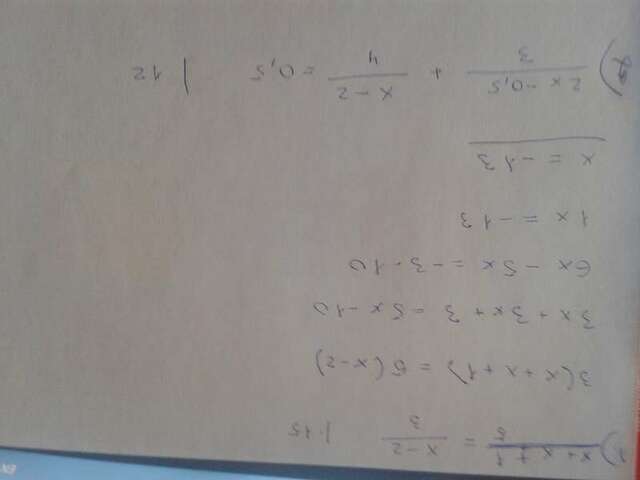 1) x+x+1/5 = x-2/3 |·15
3(x+x+1) = 5(x-2)
3x+3x+3 = 5x-10
6x-5x = -3-10
1x = -13
x = -13
2x-0,5/3 + x-2/4 = 0,5 | 12